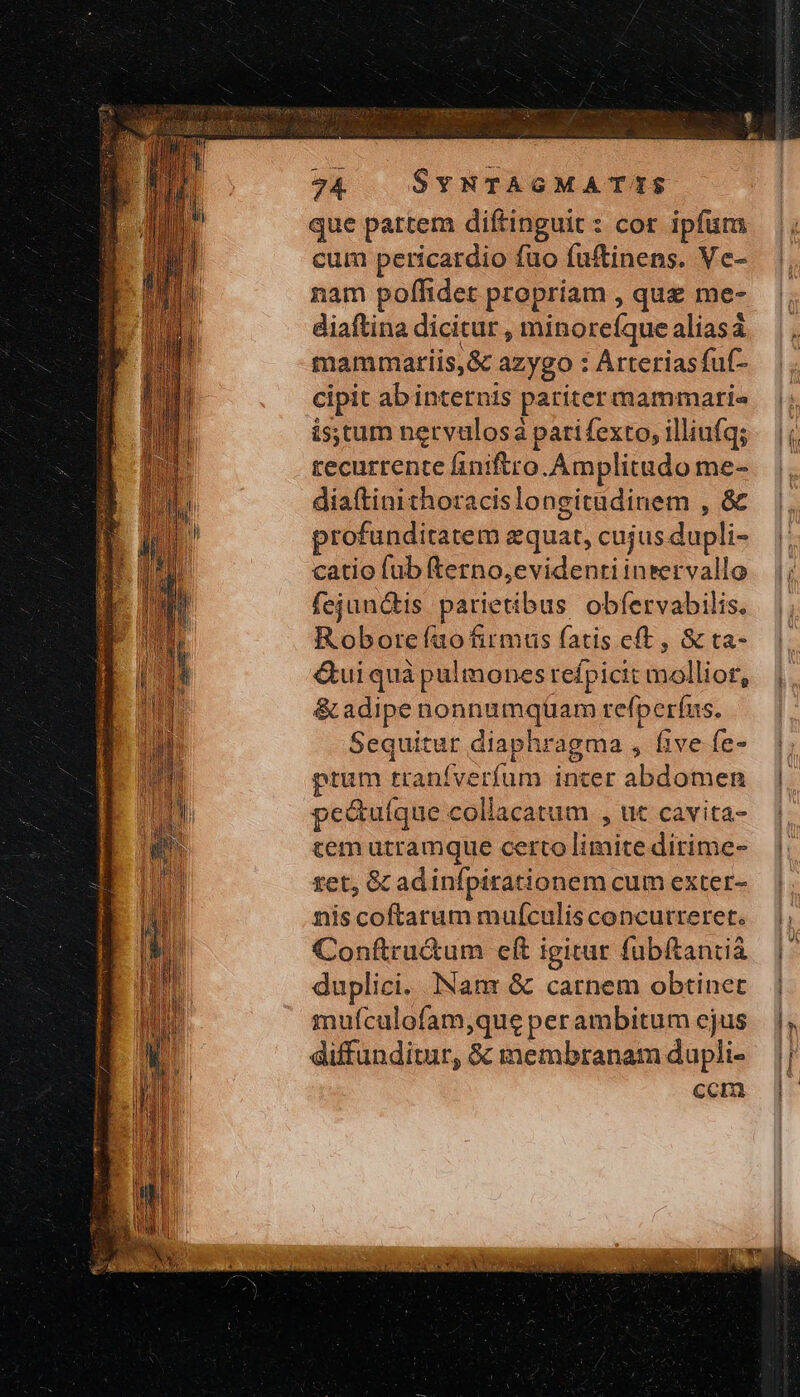 74 SYNTAGMATIS
que partem diſtinguit : cor ipſum
cum pericardio ſuo ſuſtinens. Ve-
nam poſſidet propriam , quæ me-
diaſtina dicitur , minoreſque alias à
mammariis, & azygo : Arterias ſuſ-
cipit ab internis pariter mammari-
is; tum nervulos à pari ſexto, illiuſq;
recurrente ſiniſtro. Amplitudo me-
diaſtini thoracis longitudinem , &
profunditatem æquat, cujus dupli-
catio ſub ſterno, evidenti intervallo
ſejunctis parietibus obſervabilis.
Robore ſuo firmus ſatis eſt , & ta-
ctui quà pulmones reſpicit mollior,
& adipe nonnumquam reſperſus.
Sequitur diaphragma , ſive ſe-
ptum tranſverſum inter abdomen
pectuſque collacatum , ut cavita-
tem utramque certo limite dirime-
ret, & ad inſpirationem cum exter-
nis coſtarum muſculis concurreret.
Conſtructum eſt igitur ſubſtantiâ
duplici. Nam & carnem obtinet
muſculoſam, que per ambitum ejus
diffunditur, & membranam dupli-
cem